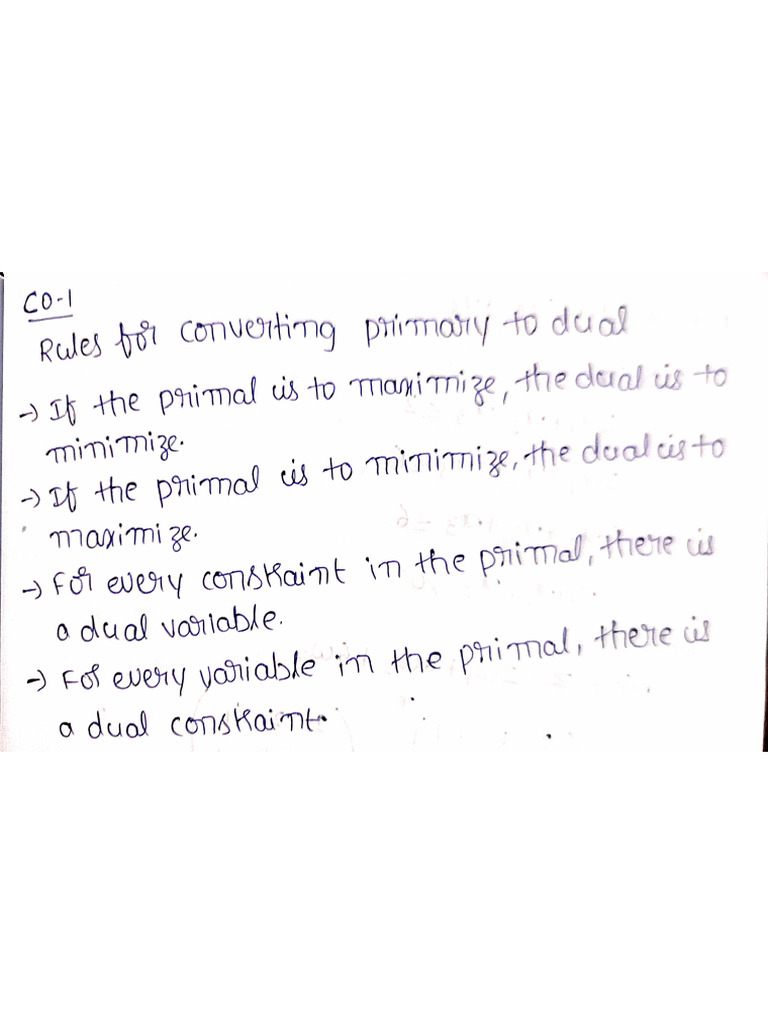 CO-1
Rules for converting primary to dual
→ If the primal is to maximize, the dual is to
minimize.
→ If the primal is to minimize, the dual is to
maximize.
→ For every constraint in the primal, there is
a dual variable.
→ For every variable in the primal, there is
a dual constraint.